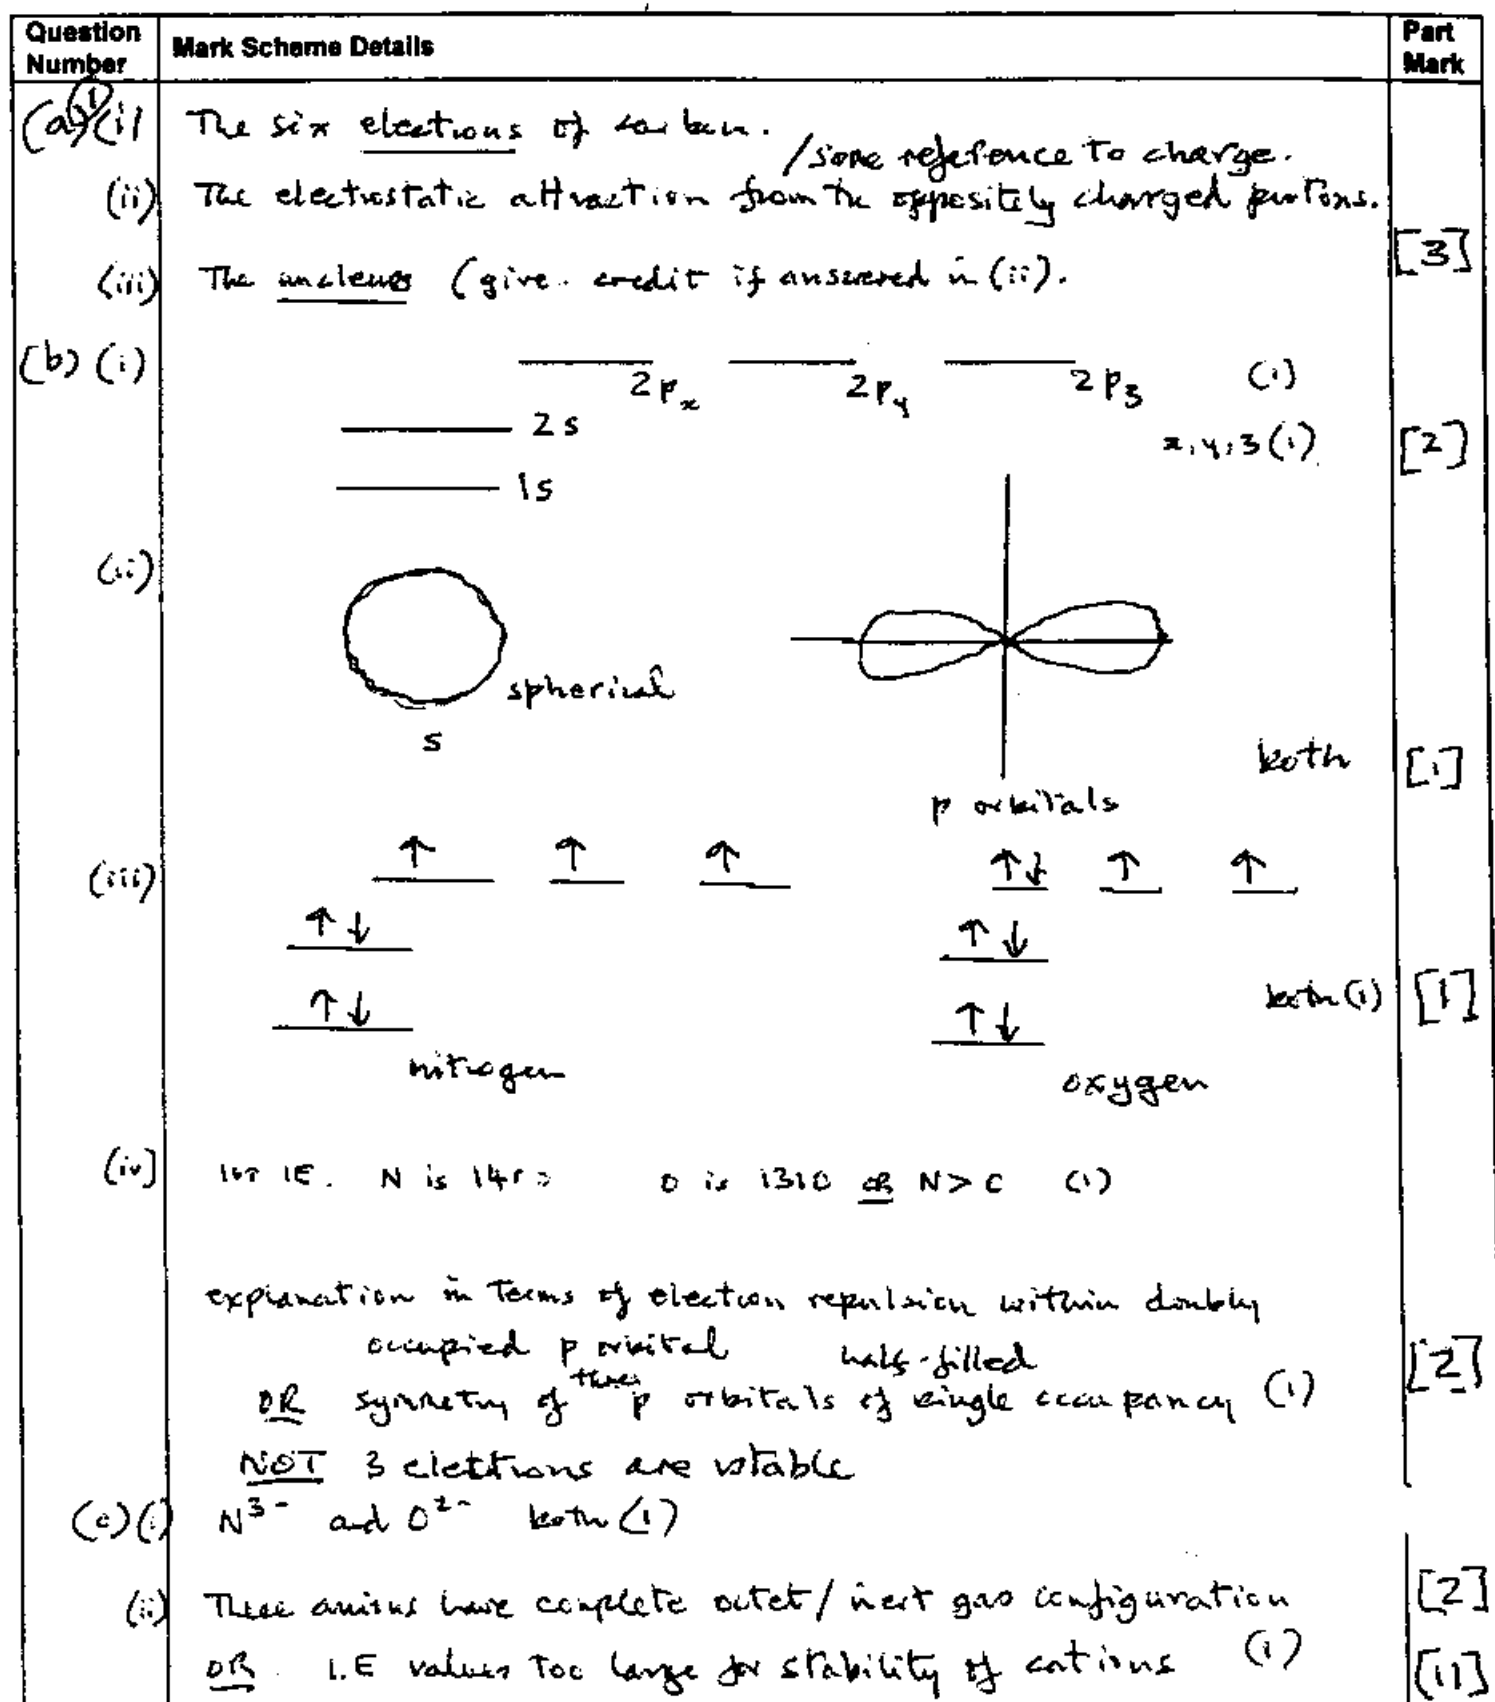 Question Number | Mark Scheme Details | Part Mark
1
(a) (i) The six electrons of carbon.
/some reference to charge.
(ii) The electrostatic attraction from the oppositely charged protons.
[3]
(iii) The nucleus (give credit if answered in (ii).
(b) (i) 2px 2py 2pz (1)
2s
x, y, z (1) [2]
1s
(ii)
spherical
s
both [1]
p orbitals
(iii) ↑ ↑ ↑ ↑↓ ↑ ↑
↑↓ ↑↓
both (1) [1]
↑↓ ↑↓
nitrogen oxygen
(iv) 1st IE. N is O is 1310 OR N > (1)
explanation in terms of electron repulsion within doubly
occupied p orbital half-filled [2]
OR symmetry of three p orbitals of single occupancy (1)
NOT 3 electrons are stable
(c) (i) N3- and O2- both (1)
(ii) These anions have complete octet / inert gas configuration [2]
OR I.E values too large for stability of cations (1) [11]